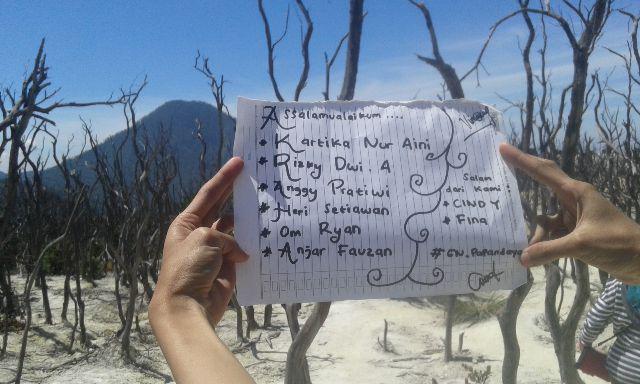 Assalamualaikum ...
* Kartika Nur Aini
* Rizky Dwi . A
* Anggy Pratiwi
* Heri Setiawan
* Om Ryan
* Anjar Fauzan
Salam
dari Kami :
* CINDY
* Fina
#GN. Papandayan